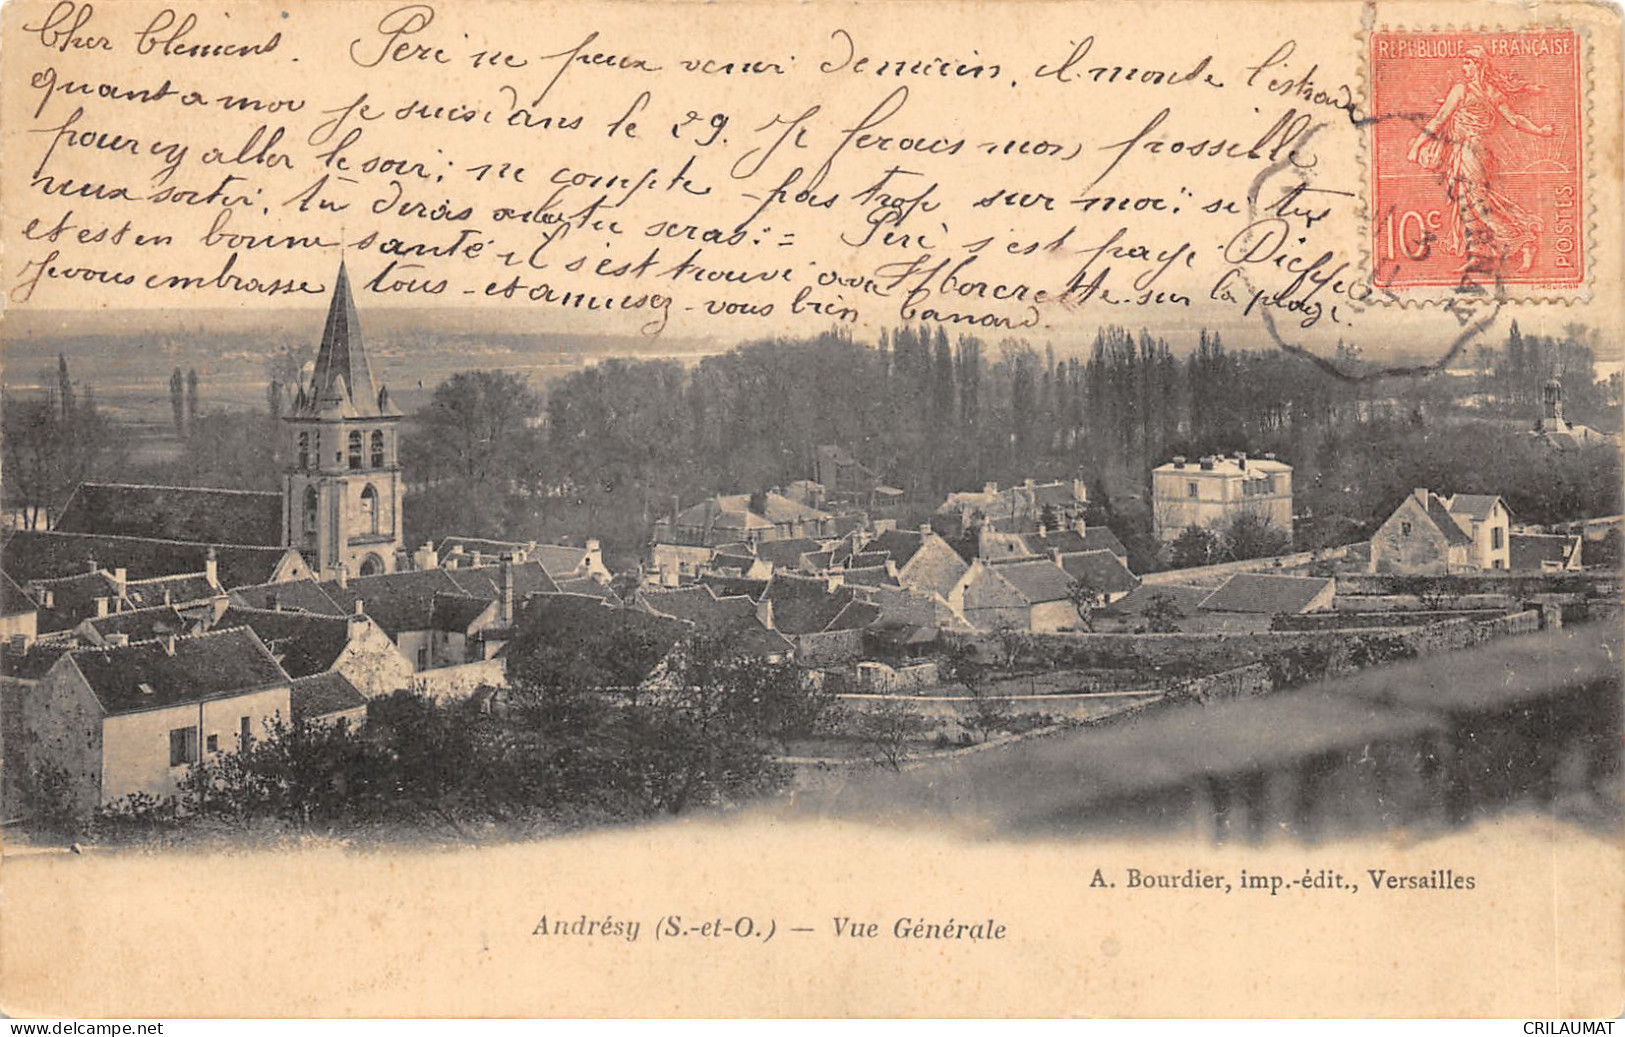 Cher Clément. Peri ne peux venir demain, il monte l'estrade
quant a moi je suis dans le 29. Je ferais mon possille
pour y aller le soir; ne compte pas trop sur moi; si tu
veux sortir, tu diras où tu seras: = Peri s'est payé Dieppe
et est en bonne santé il s'est trouvé avec Horcrette sur la plage.
Je vous embrasse tous - et amusez-vous bien Canard.
REPUBLIQUE FRANÇAISE
10c
POSTES
A. Bourdier, imp.-édit., Versailles
Andrésy (S.-et-O.) — Vue Générale
www.delcampe.net
CRILAUMAT